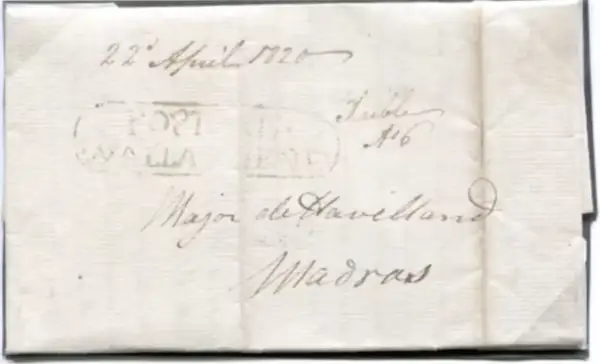 22d April 1820
Treble
As 6
Major de Havilland
Madras